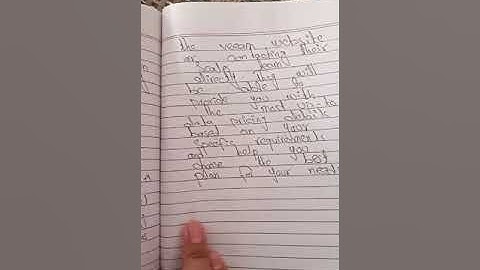 the veeam website
or contacting their
sales team
directly they will
be able to
provide you with
the most up-to
data pricing details
based on your
specific requirements
and help you
choose the best
plan for your needs